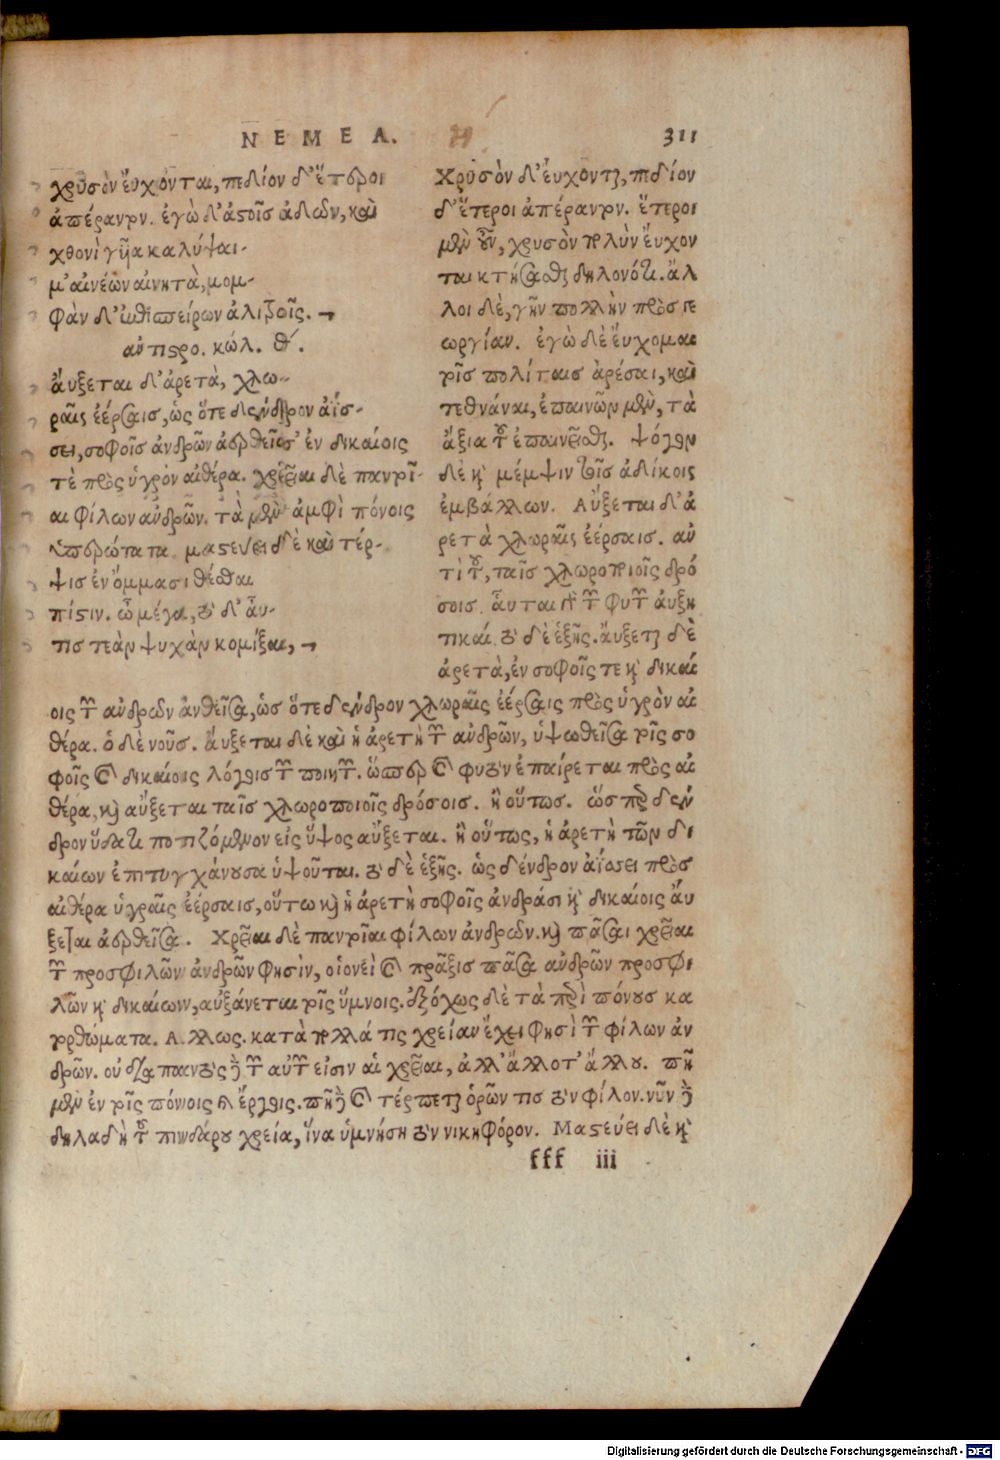 ΝΕΜΕΑ. Η 311
χρυσὸν ἔυχονται, πεδίον δ' ἕτεροι
ἀπέραντον. ἐγὼ δ' ἀστοῖς ἁδὼν, καὶ
χθονὶ γῦῖα καλύψαι-
μ' αἰνέων αἰνητὰ, μομ-
φὰν δ' ἐπισπείρων ἀλιτροῖς. ¬
ἀντιστρο. κώλ. θ'.
ἄυξεται δ' ἀρετὰ, χλω-
ραῖς ἐέρσαις, ὡς ὅτε δένδρον ἀΐσ-
σει, σοφοῖς ἀνδρῶν ἀερθεῖσ' ἐν δικαίοις
τὲ πρὸς ὑγρὸν αἰθέρα. χρεῖαι δὲ παντοῖ-
αι φίλων ἀνδρῶν. τὰ μὲν ἀμφὶ πόνοις
ὑπερώτατα. μαστεύει δὲ καὶ τέρ-
ψις ἐν ὄμμασι θέσθαι
πίστιν. ὦ μέγα, τὸ δ' ἆυ-
τις τεὰν ψυχὰν κομίξαι, ¬
Χρυσὸν δ' ἔυχονται, πεδίον
δ' ἕτεροι ἀπέραντον. ἕτεροι
μὲν οὖν, χρυσὸν πολὺν ἔυχον
ται κτήσασθαι δηλονότι. ἄλ
λοι δὲ, γῆν πολλὴν πρὸς γε
ωργίαν. ἐγὼ δὲ ἔυχομαι
τοῖς πολίταις ἀρέσαι, καὶ
τεθνάναι, ἐπαινῶν μὲν, τὰ
ἄξια τοῦ ἐπαινεῖσθαι. ψόγον
δὲ καὶ μέμψιν τοῖς ἀδίκοις
ἐμβάλλων. Αὔξεται δ' ἀ
ρετὰ χλωραῖς ἐέρσαις. ἀν
τὶ τοῦ, ταῖς χλωροποιοῖς δρό
σοις. αὗται γὰρ τῶν φυτῶν ἀυξη
τικαί. τὸ δὲ ἑξῆς. ἄυξεται δὲ
ἀρετὰ, ἐν σοφοῖς τε καὶ δικαί
οις τῶν ἀνδρῶν ἀνθεῖσα, ὡσ ὅτε δένδρον χλωραῖς ἐέρσαις πρὸς ὑγρὸν αἰ
θέρα. ὁ δὲ νοῦσ. ἄυξεται δὲ καὶ ἡ ἀρετὴ τῶν ἀνδρῶν, ὑψωθεῖσα τοῖς σο
φοῖς καὶ δικαίοις λόγοις τῶν ποιητῶν. ὥσπερ καὶ φυτὸν ἐπαίρεται πρὸς αἰ
θέρα, καὶ αὔξεται ταῖσ χλωροποιοῖς δρόσοις. ἢ οὕτως. ὥς περ δέν
δρον ὕδατι ποτιζόμενον εἰς ὕψος αὔξεται. ἢ οὕτως, ἡ ἀρετὴ τῶν δι
καίων ἐπιτυγχάνουσα ὑψοῦται. τὸ δὲ ἑξῆς. ὡς δένδρον ἀΐσσει πρὸσ
αἰθέρα ὑγραῖς ἐέρσαισ, οὕτω καὶ ἡ ἀρετὴ σοφοῖς ἀνδράσι καὶ δικαίοις ἄυ
ξεται ἀερθεῖσα. Χρεῖαι δὲ παντοῖαι φίλων ἀνδρῶν. καὶ πᾶσαι χρεῖαι
τῶν προσφιλῶν ἀνδρῶν φησὶν, οἱονεὶ καὶ πρᾶξις πᾶσα ἀνδρῶν προσφι
λῶν καὶ δικαίων, αὐξάνεται τοῖς ὕμνοις. ἐξόχως δὲ τὰ περὶ πόνουσ κα
τορθώματα. Αλλως. κατὰ πολλά τις χρείαν ἔχει φησὶ τῶν φίλων ἀν
δρῶν. οὐ διαπαντὸς γὰρ τῶν αὐτῶν εἰσιν αἱ χρεῖαι, ἀλλ' ἄλλοτ' ἄλλου. πῆ
μὲν ἐν τοῖς πόνοις καὶ ἔργοις. πῆ γὰρ καὶ τέρπεται ὁρῶν τισ τὸν φίλον. νῦν γὰρ
δηλαδὴ τοῦ πινδάρου χρεία, ἵνα ὑμνήσῃ τὸν νικηφόρον. Μαστεύει δὲ καὶ
fff iii
Digitalisierung gefördert durch die Deutsche Forschungsgemeinschaft - DFG